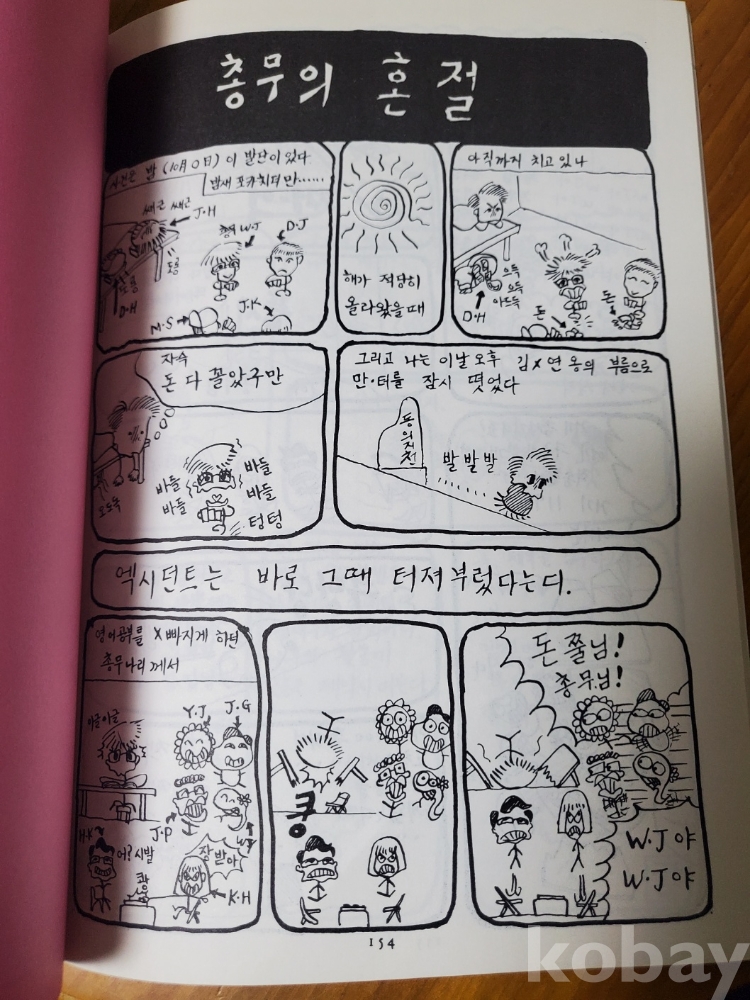 총무의 혼절
사건은 밤 (10月 0日)이 발단이 있다
밤새 포카치더만……
쌔근 쌔근
J·H
W·J
D·J
드릉
D·H
M·S
J·K
해가 적당히
올라왔을때
아직까지 치고 있나
으득
으득
아드득
D·H
돈
돈
자슥
돈 다 꼴았구만
바들
바들
바들
바들
텅텅
그리고 나는 이날 오후 김X연 옹의 부름으로
만·터를 잠시 떳었다
동의지천
발 발 발
엑시던트는 바로 그때 터져부렀다는디.
영어공부를 X빠지게 하던
총무나리께서
이글이글
Y.J
J.G
H·K
J·P
W·J
어? 시발
쾅
장받아
K·H
쿵
돈 쭐님!
총무님!
W.J 야
W.J 야
154
kobay